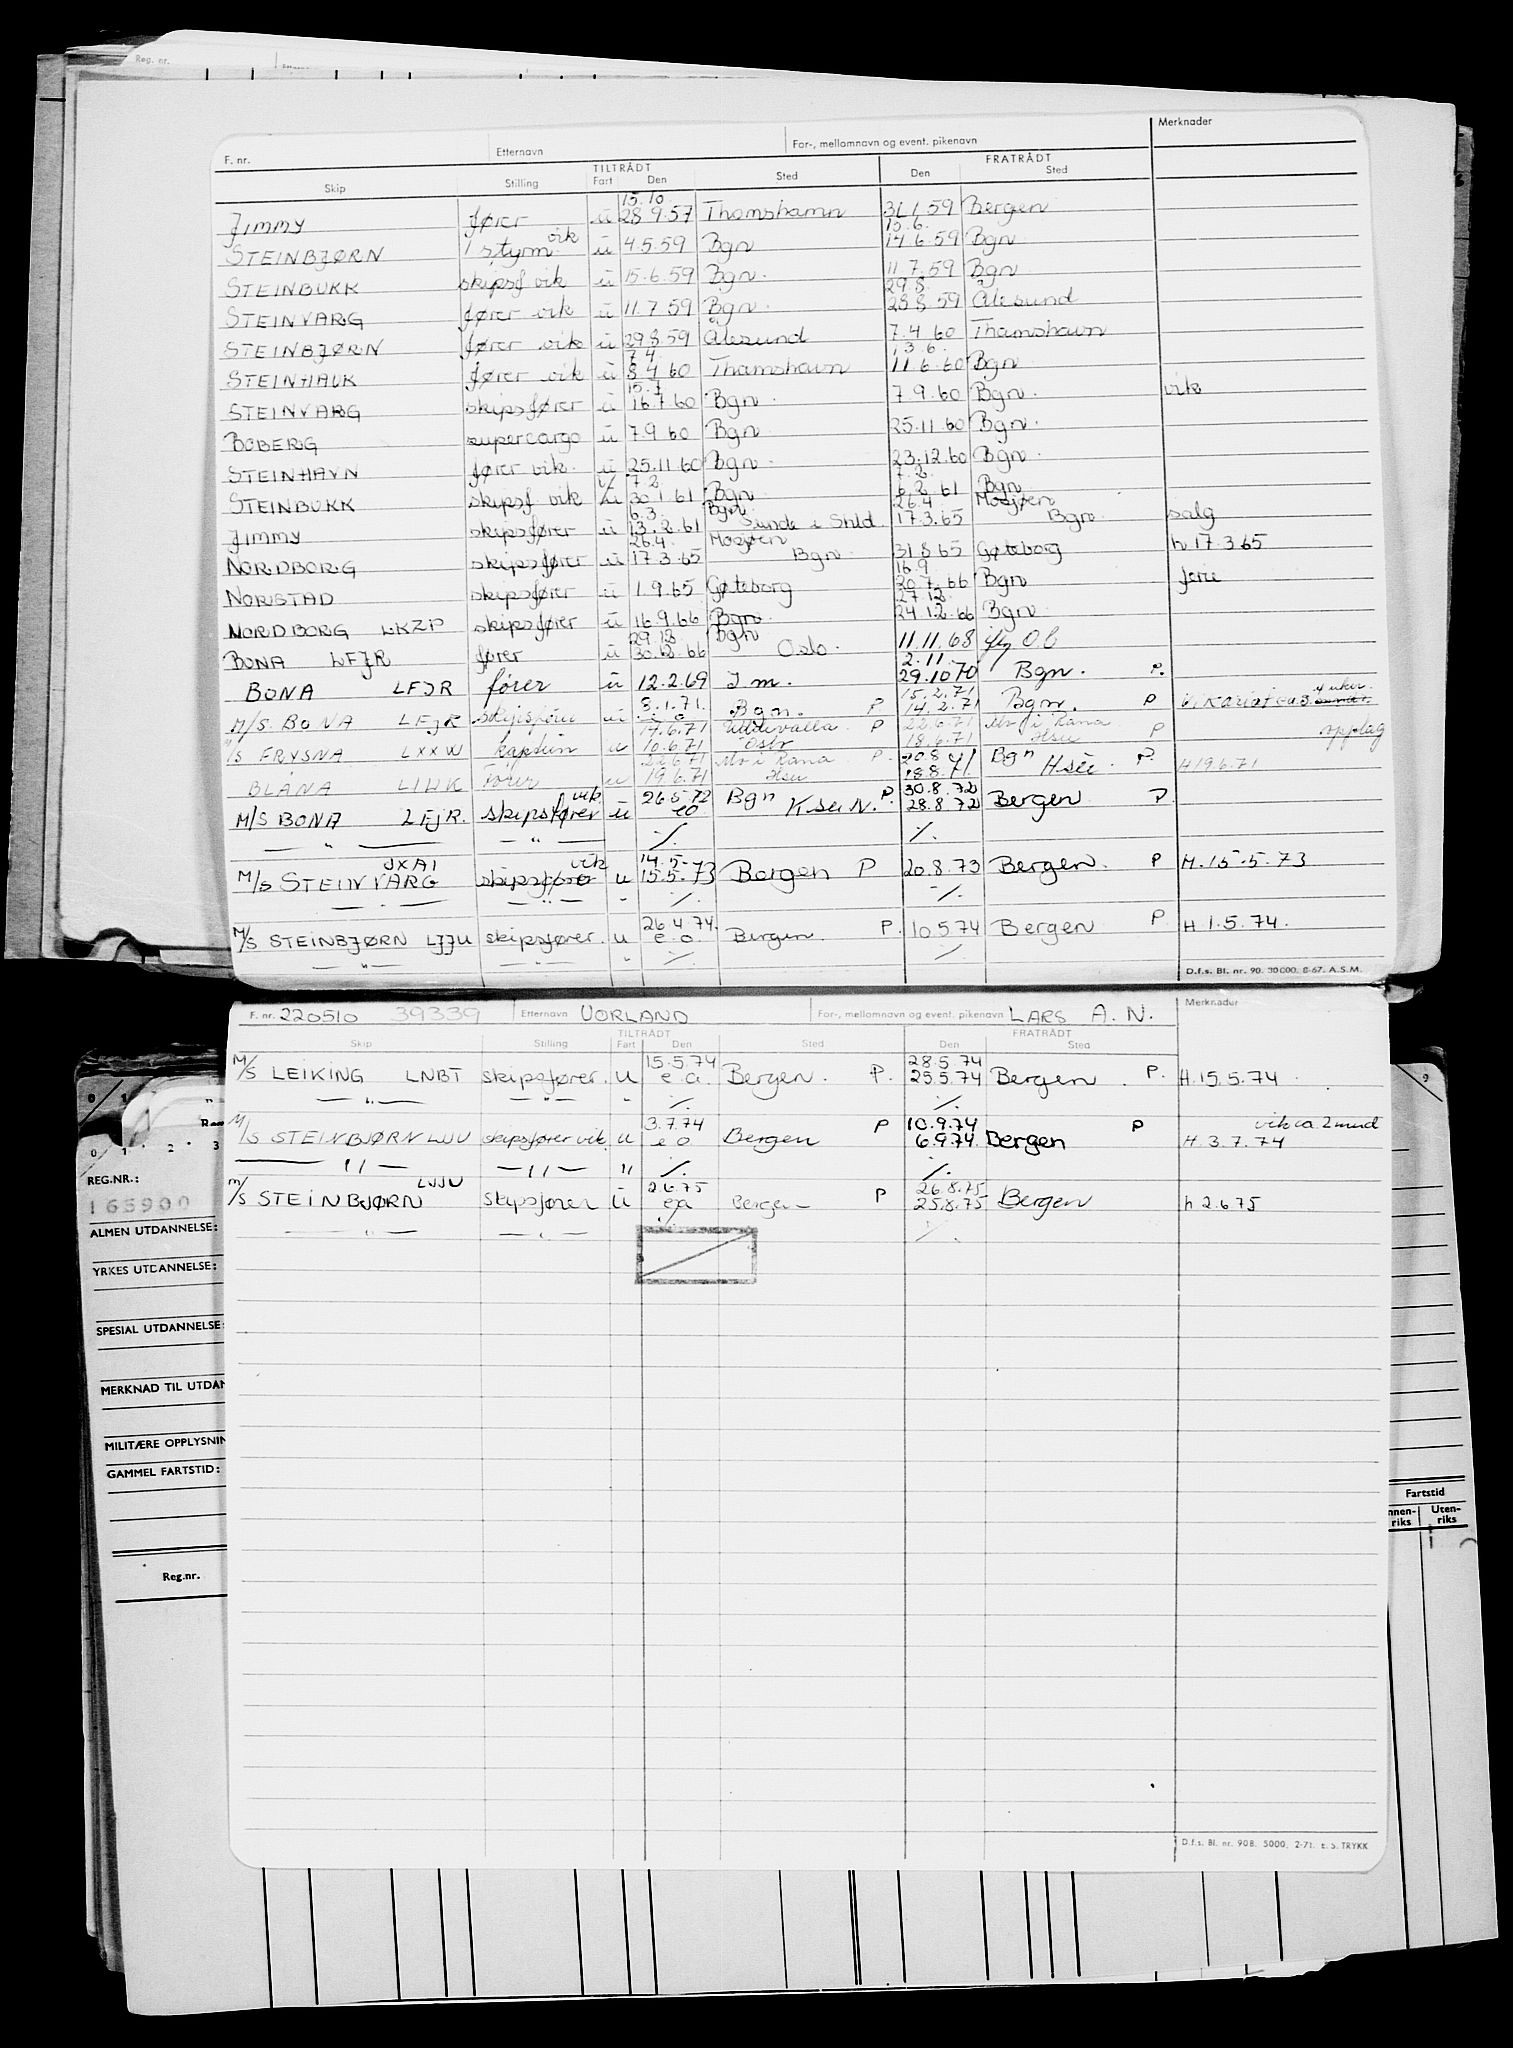 Reg. nr.
Merknader
F. nr. Etternavn For-, mellomnavn og event. pikenavn
TILTRÅDT FRATRÅDT
Skip Stilling Fart Den Sted Den Sted
15.10
JIMMY fører u 28.9.57 Thamshamn 31.1.59 Bergen
15.6.
STEINBJØRN 1 styrm vik u 4.5.59 Bgn 14.6.59 Bgn
STEINBUKK skipsf vik u 15.6.59 Bgn. 11.7.59 Bgn
29.8.
STEINVARG fører vik u 11.7.59 Bgn. 28.8.59 Ålesund
STEINBJØRN fører vik u 29.8.59 Ålesund 7.4.60 Thamshavn
7.4. 13.6.
STEINHAUK fører vik u 8.4.60 Thamshavn 11.6.60 Bgn
STEINVARG skipsfører u 16.7.60 Bgn. 7.9.60 Bgn. vik
BOBERG supercargo u 7.9.60 Bgn 25.11.60 Bgn.
STEINHAVN fører vik. u 25.11.60 Bgn. 23.12.60 Bgn.
7.2 7.2.
STEINBUKK skipsf. vik u 30.1.61 Bgn 6.2.61 Bgn
6.3. Bgn. 26.4 Mosjøen
JIMMY skipsfører u 13.2.61 Sunde i Shld. 17.3.65 Bgn. salg
26.4. Mosjøen
NORDBORG skipsfører u 17.3.65 Bgn 31.8.65 Gøteborg h 17.3.65
16.9
NORSTAD skipsfører u 1.9.65 Gøteborg 20.7.66 Bgn ferie
27.12
NORDBORG LKZP skipsfører u 16.9.66 Bgn. 24.12.66 Bgn.
29.12 Bgn
BONA LFJR fører u 30.12.66 Oslo. 11.11.68
2.11.
BONA LFJR fører u 12.2.69 I m. 29.10.70 Bgn. P.
8.1.71. 15.2.71
M/S. BONA LFJR skipsfører u e o Bgn. P 14.2.71 Bgn. P Vikariat ca 3
14.6.71 Uddevalla P 22.6.71 Mo i Rana P opplag
M/S FRYSNA LXXW kaptein u 10.6.71 Osbr 18.6.71 Hsu
22.6.71 Mo i Rana P. 20.8 Bgn P.
BLÅNA Fører u 19.6.71 Hsu 18.8.71. Hsu. H 19.6.71
vik 26.5.72 Bgn P. 30.8.72
M/S BONA LFJR. skipsfører u eo Ksu N. 28.8.72 Bergen P.
— " — — " — ⁒ ⁒.
JXAI vik 14.5.
M/S STEINVARG skipsfører u 15.5.73 Bergen P 20.8.73 Bergen. P H. 15.5.73
— " — — " — " ⁒. ⁒.
26.4.74.
M/S STEINBJØRN LJJU skipsfører. u e.o. Bergen. P. 10.5.74 Bergen P. H 1.5.74.
— " — — " — " ⁒ ⁒
D.f.s. Bl. nr. 90. 30000. 8-67. A.S.M.
Merknader
F. nr. 220510 39339 Etternavn VORLAND For-, mellomnavn og event. pikenavn LARS A. N.
TILTRÅDT FRATRÅDT
Skip Stilling Fart Den Sted Den Sted
15.5.74 28.5.74
M/S LEIKING LNBT skipsfører. u e a. Bergen. P. 25.5.74 Bergen. P. H. 15.5.74
— " — — " — " ⁒. ⁒.
3.7.74 10.9.74 vik ca. 2 mnd
M/S STEINBJØRN LJJU skipsfører vik. u e o Bergen P 6.9.74. Bergen P H. 3.7.74
— " — — " — " ⁒. ⁒.
LJJU 2.6.75 26.8.75
M/S STEINBJØRN skipsfører u ea Bergen P 25.8.75 Bergen h 2.6.75
— " — — " — ⁒ ⁒.
REG.NR.:
165900
ALMEN UTDANNELSE:
YRKES UTDANNELSE:
SPESIAL UTDANNELSE:
MERKNAD TIL UTDAN
MILITÆRE OPPLYSNIN
GAMMEL FARTSTID:
Fartstid
nnen-riks Uten-riks
Reg.nr.
D.f.s. Bl. nr. 90B. 5000, 2-71. E.S. TRYKK